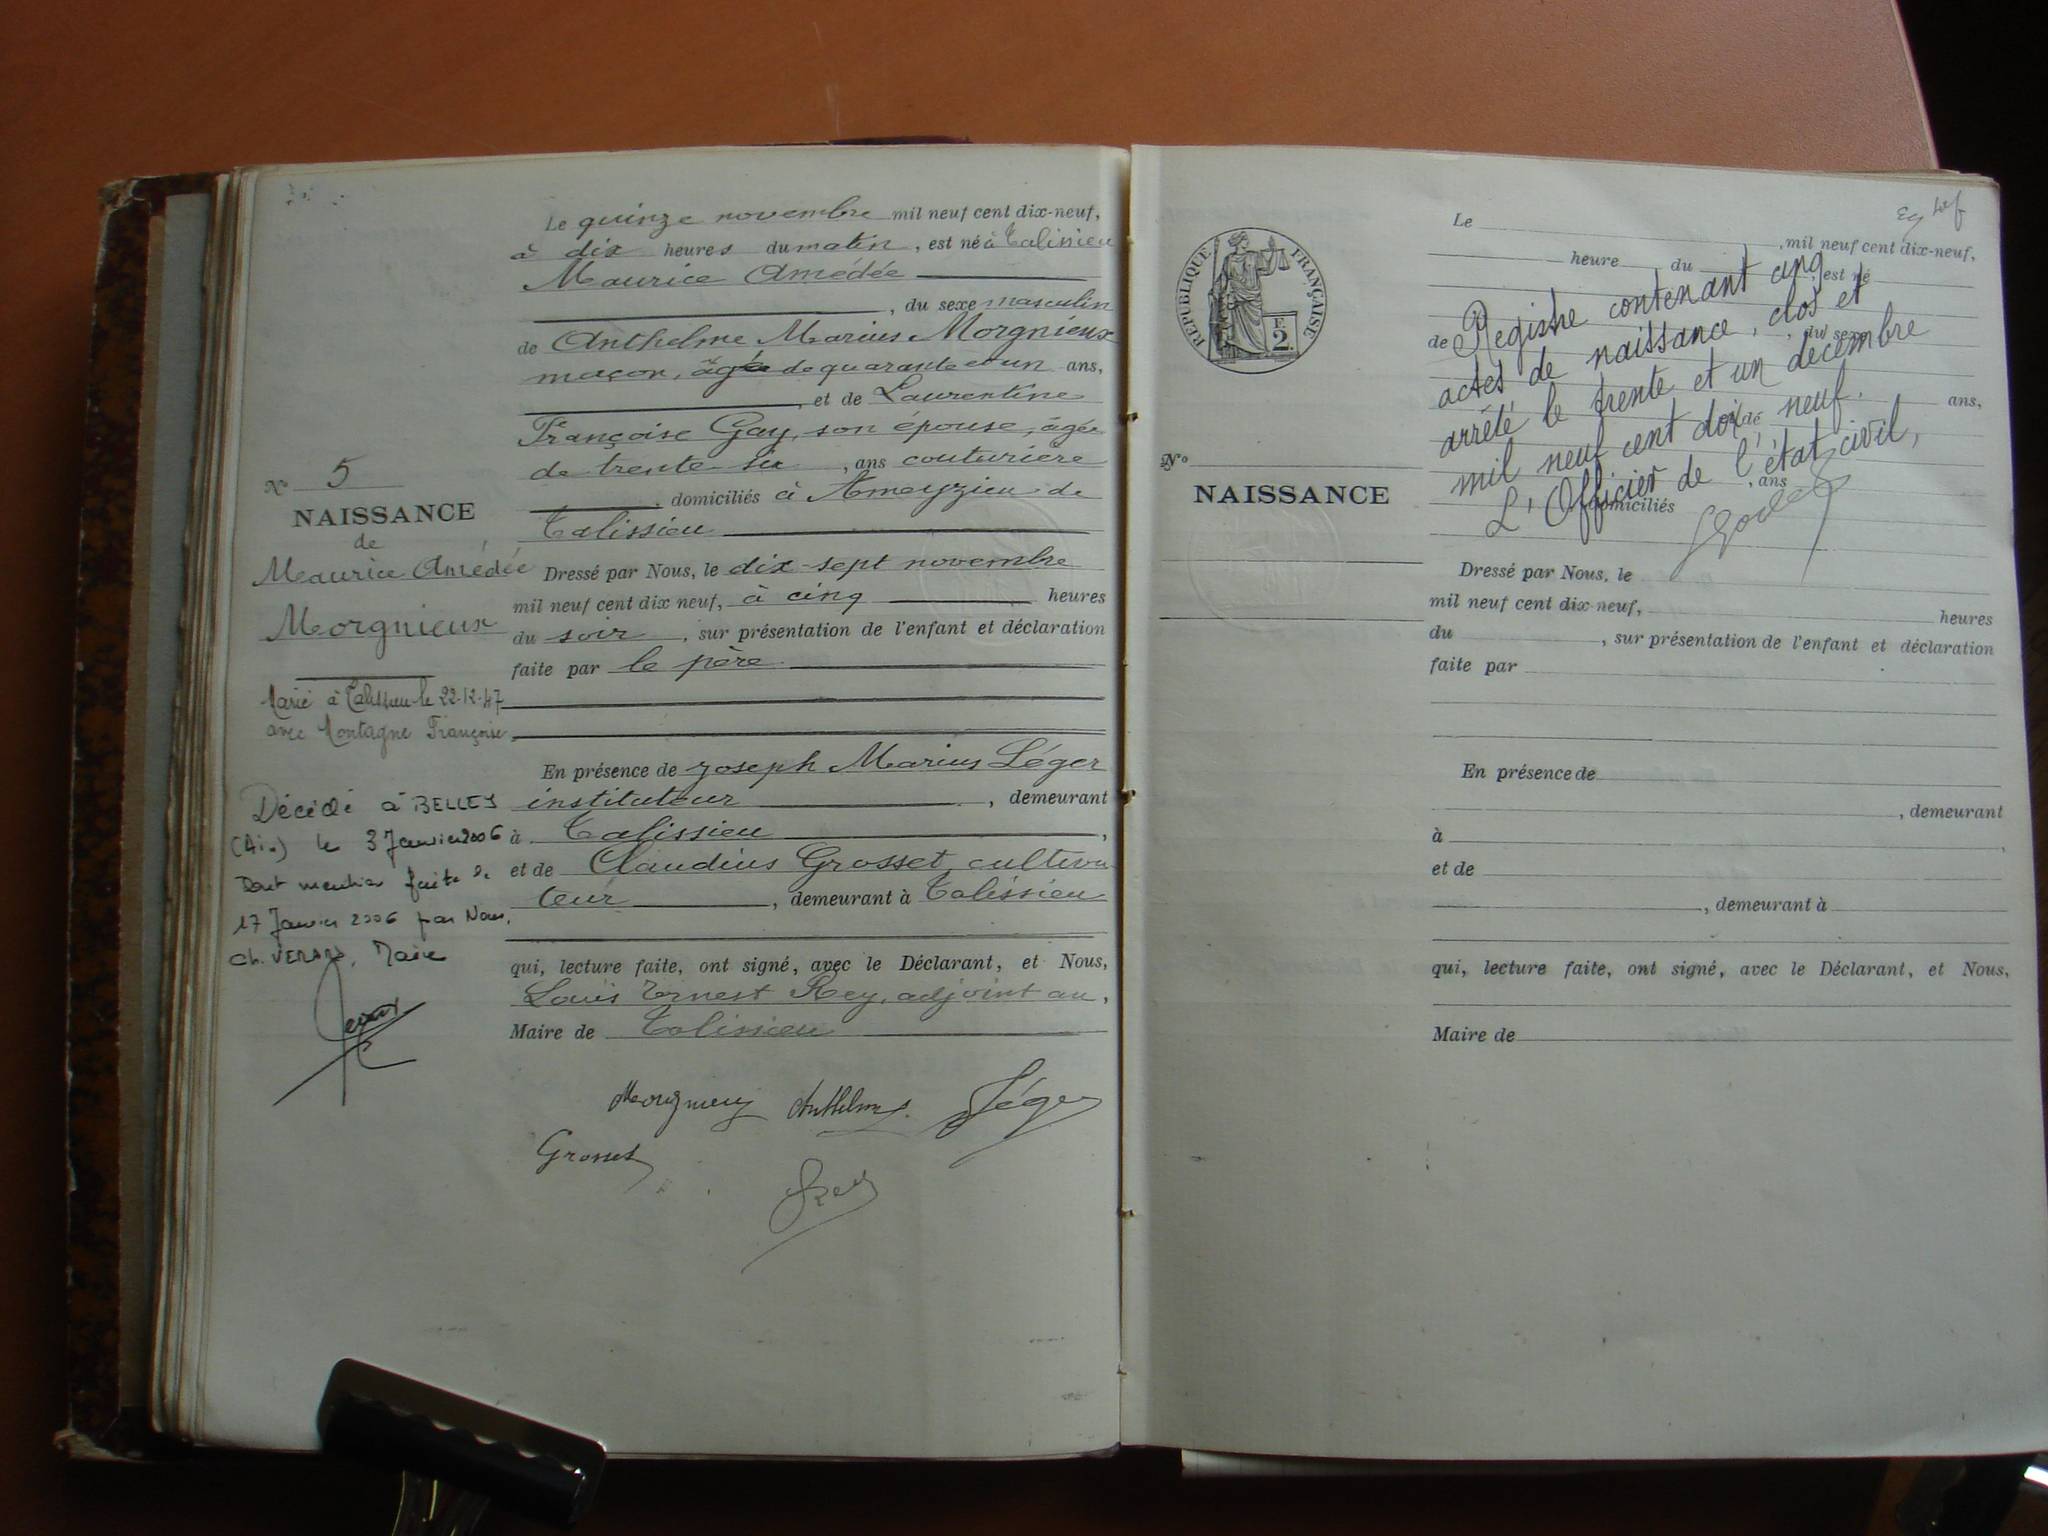 Le quinze novembre mil neuf cent dix-neuf,
à dix heures du matin, est né à Talissieu
Maurice Amédée
, du sexe masculin
de Anthelme Marius Morgnieux
maçon, âgé de quarante et un ans,
, et de Laurentine
Françoise Gay, son épouse, âgée
de trente-six, ans couturière
, domiciliés à Ameyzieu de
Talissieu
Dressé par Nous, le dix-sept novembre
mil neuf cent dix neuf, à cinq heures
du soir, sur présentation de l'enfant et déclaration
faite par le père
En présence de Joseph Marius Léger
instituteur, demeurant
à Talissieu,
et de Claudius Grosset cultiva
teur, demeurant à Talissieu
qui, lecture faite, ont signé, avec le Déclarant, et Nous,
Louis Ernest Rey, adjoint au,
Maire de Talissieu
Anthelme Léger
Grosset
Rey
No 5
NAISSANCE
de
Maurice Amédée
Morgnieux
Marié à Talissieu le 22.12.47
avec Montagne Françoise
Décédé à BELLEY
(Ain) le 3 Janvier 2006
Dont mention faite le
17 Janvier 2006 par Nous,
Ch. Maire
RÉPUBLIQUE FRANÇAISE
E.
2.
No
NAISSANCE
Le
, mil neuf cent dix-neuf,
heure du
est né
de
, du sexe
ans,
et de
, ans
domiciliés
Registre contenant cinq
actes de naissance, clos et
arrêté le trente et un décembre
mil neuf cent dix neuf.
L'Officier de l'état civil,
Dressé par Nous, le
mil neuf cent dix-neuf, heures
du , sur présentation de l'enfant et déclaration
faite par
En présence de
, demeurant
à ,
et de
, demeurant à
qui, lecture faite, ont signé, avec le Déclarant, et Nous,
Maire de